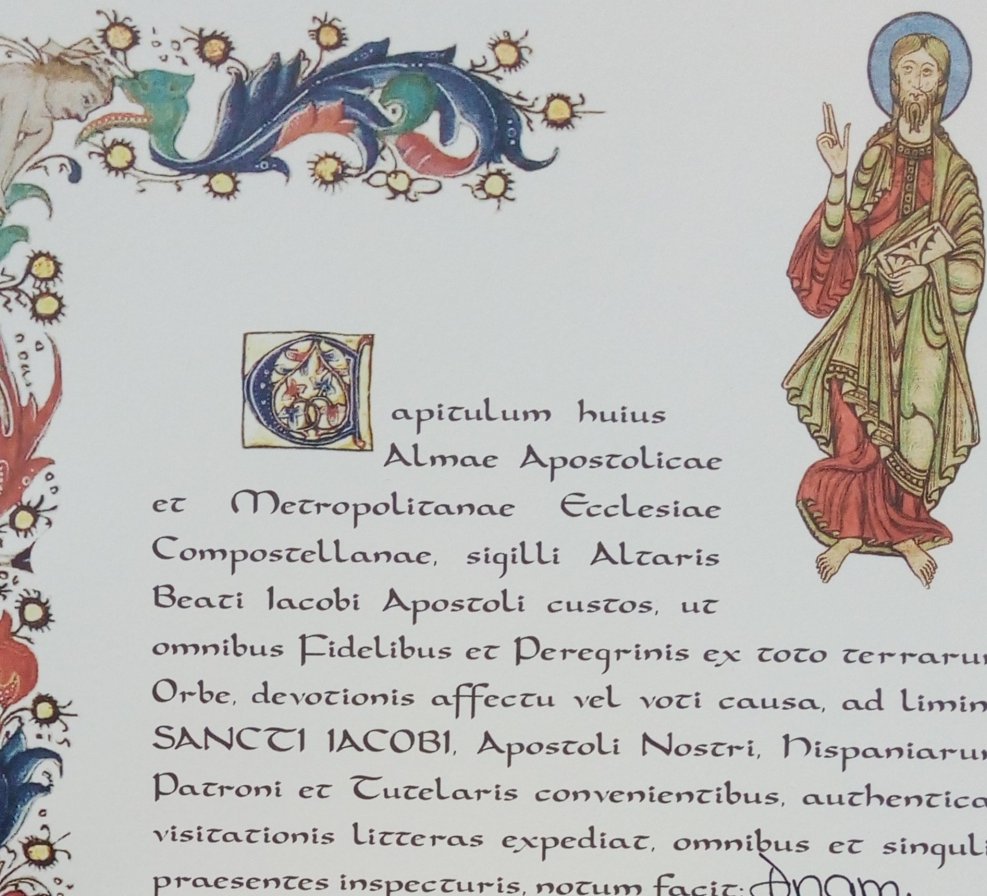 Capitulum huius
Almae Apostolicae
et Metropolitanae Ecclesiae
Compostellanae, sigilli Altaris
Beati Iacobi Apostoli custos, ut
omnibus Fidelibus et Peregrinis ex toto terraru
Orbe, devotionis affectu vel voti causa, ad limin
SANCTI IACOBI, Apostoli Nostri, Hispaniaru
Patroni et Tutelaris convenientibus, authentica
visitationis litteras expediat, omnibus et singuli
praesentes inspecturis, notum facit: Dnam.